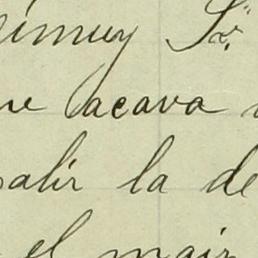 imuy Sr.
ue acava
salir la de
el mair